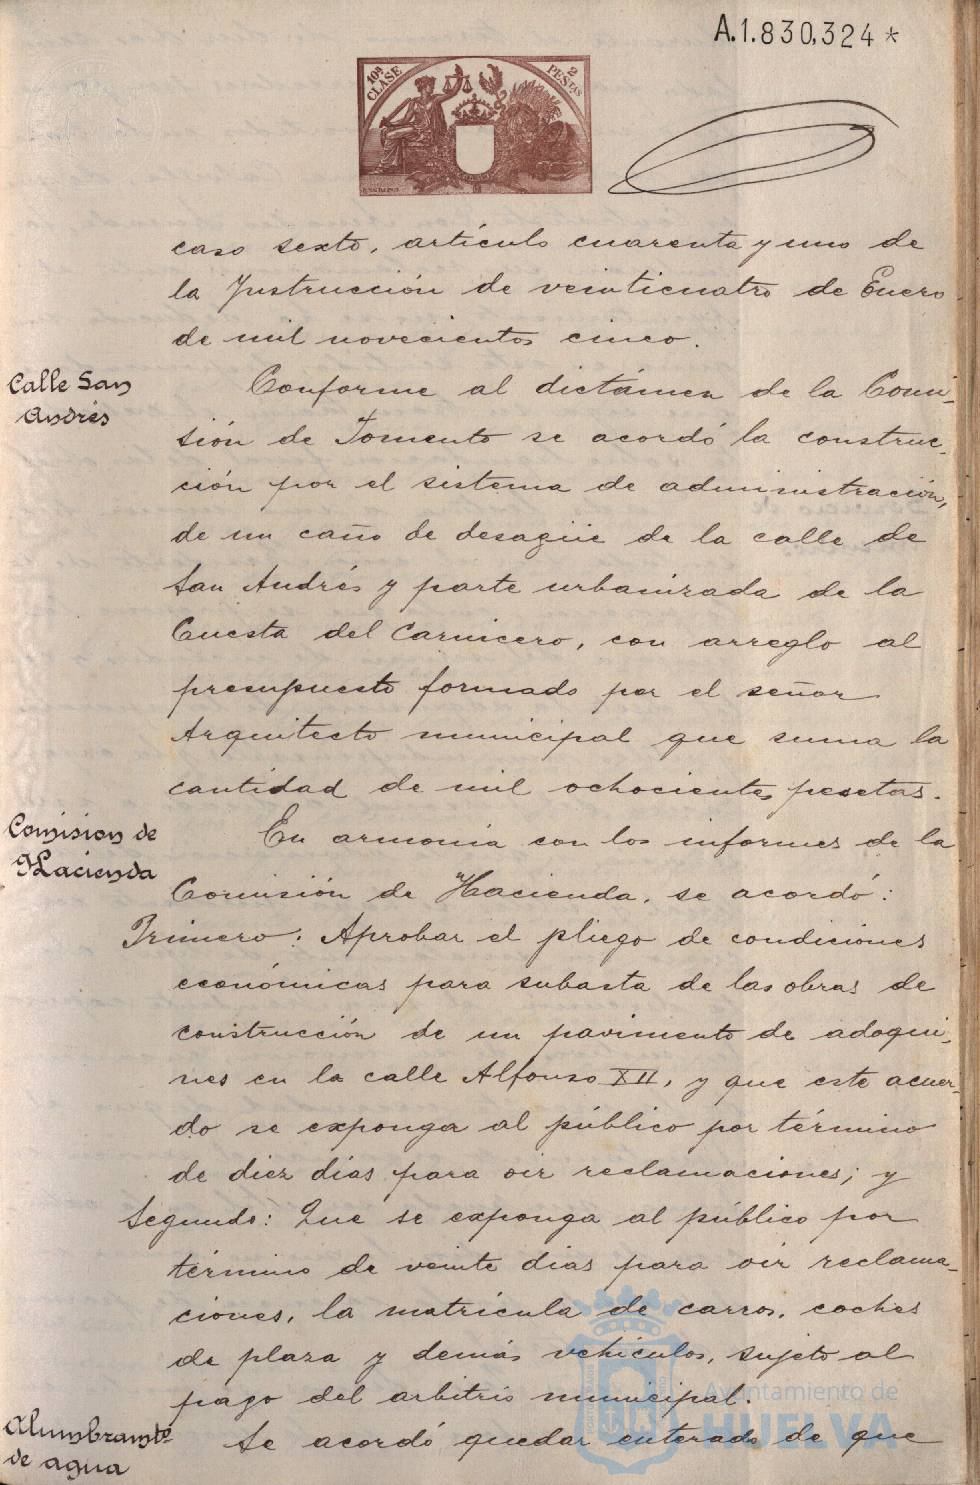 A.1.830,324*
10ª CLASE
2 PESETAS
caso sexto, artículo cuarenta y uno de
la Instrucción de veinticuatro de Enero
de mil novecientos cinco.
Calle San
Andrés
Conforme al dictámen de la Comi-
sión de Fomento se acordó la construc-
ción por el sistema de administración,
de un caño de desagüe de la calle de
San Andrés y parte urbanizada de la
Cuesta del Carnicero, con arreglo al
presupuesto formado por el señor
Arquitecto municipal que suma la
cantidad de mil ochocientas pesetas.
Comision de
Hacienda
En armonia con los informes de la
Comisión de Hacienda, se acordó:
Primero: Aprobar el pliego de condiciones
económicas para subasta de las obras de
construcción de un pavimento de adoqui-
nes en la calle Alfonso XII, y que este acuer-
do se exponga al público por término
de diez dias para oir reclamaciones; y
Segundo: Que se exponga al público por
término de veinte dias para oir reclama-
ciones, la matrícula de carros, coches
de plaza y demás vehículos, sujeto al
pago del arbitrio municipal.
Alumbramto
de agua
Se acordó quedar enterado de que
Ayuntamiento de
HUELVA